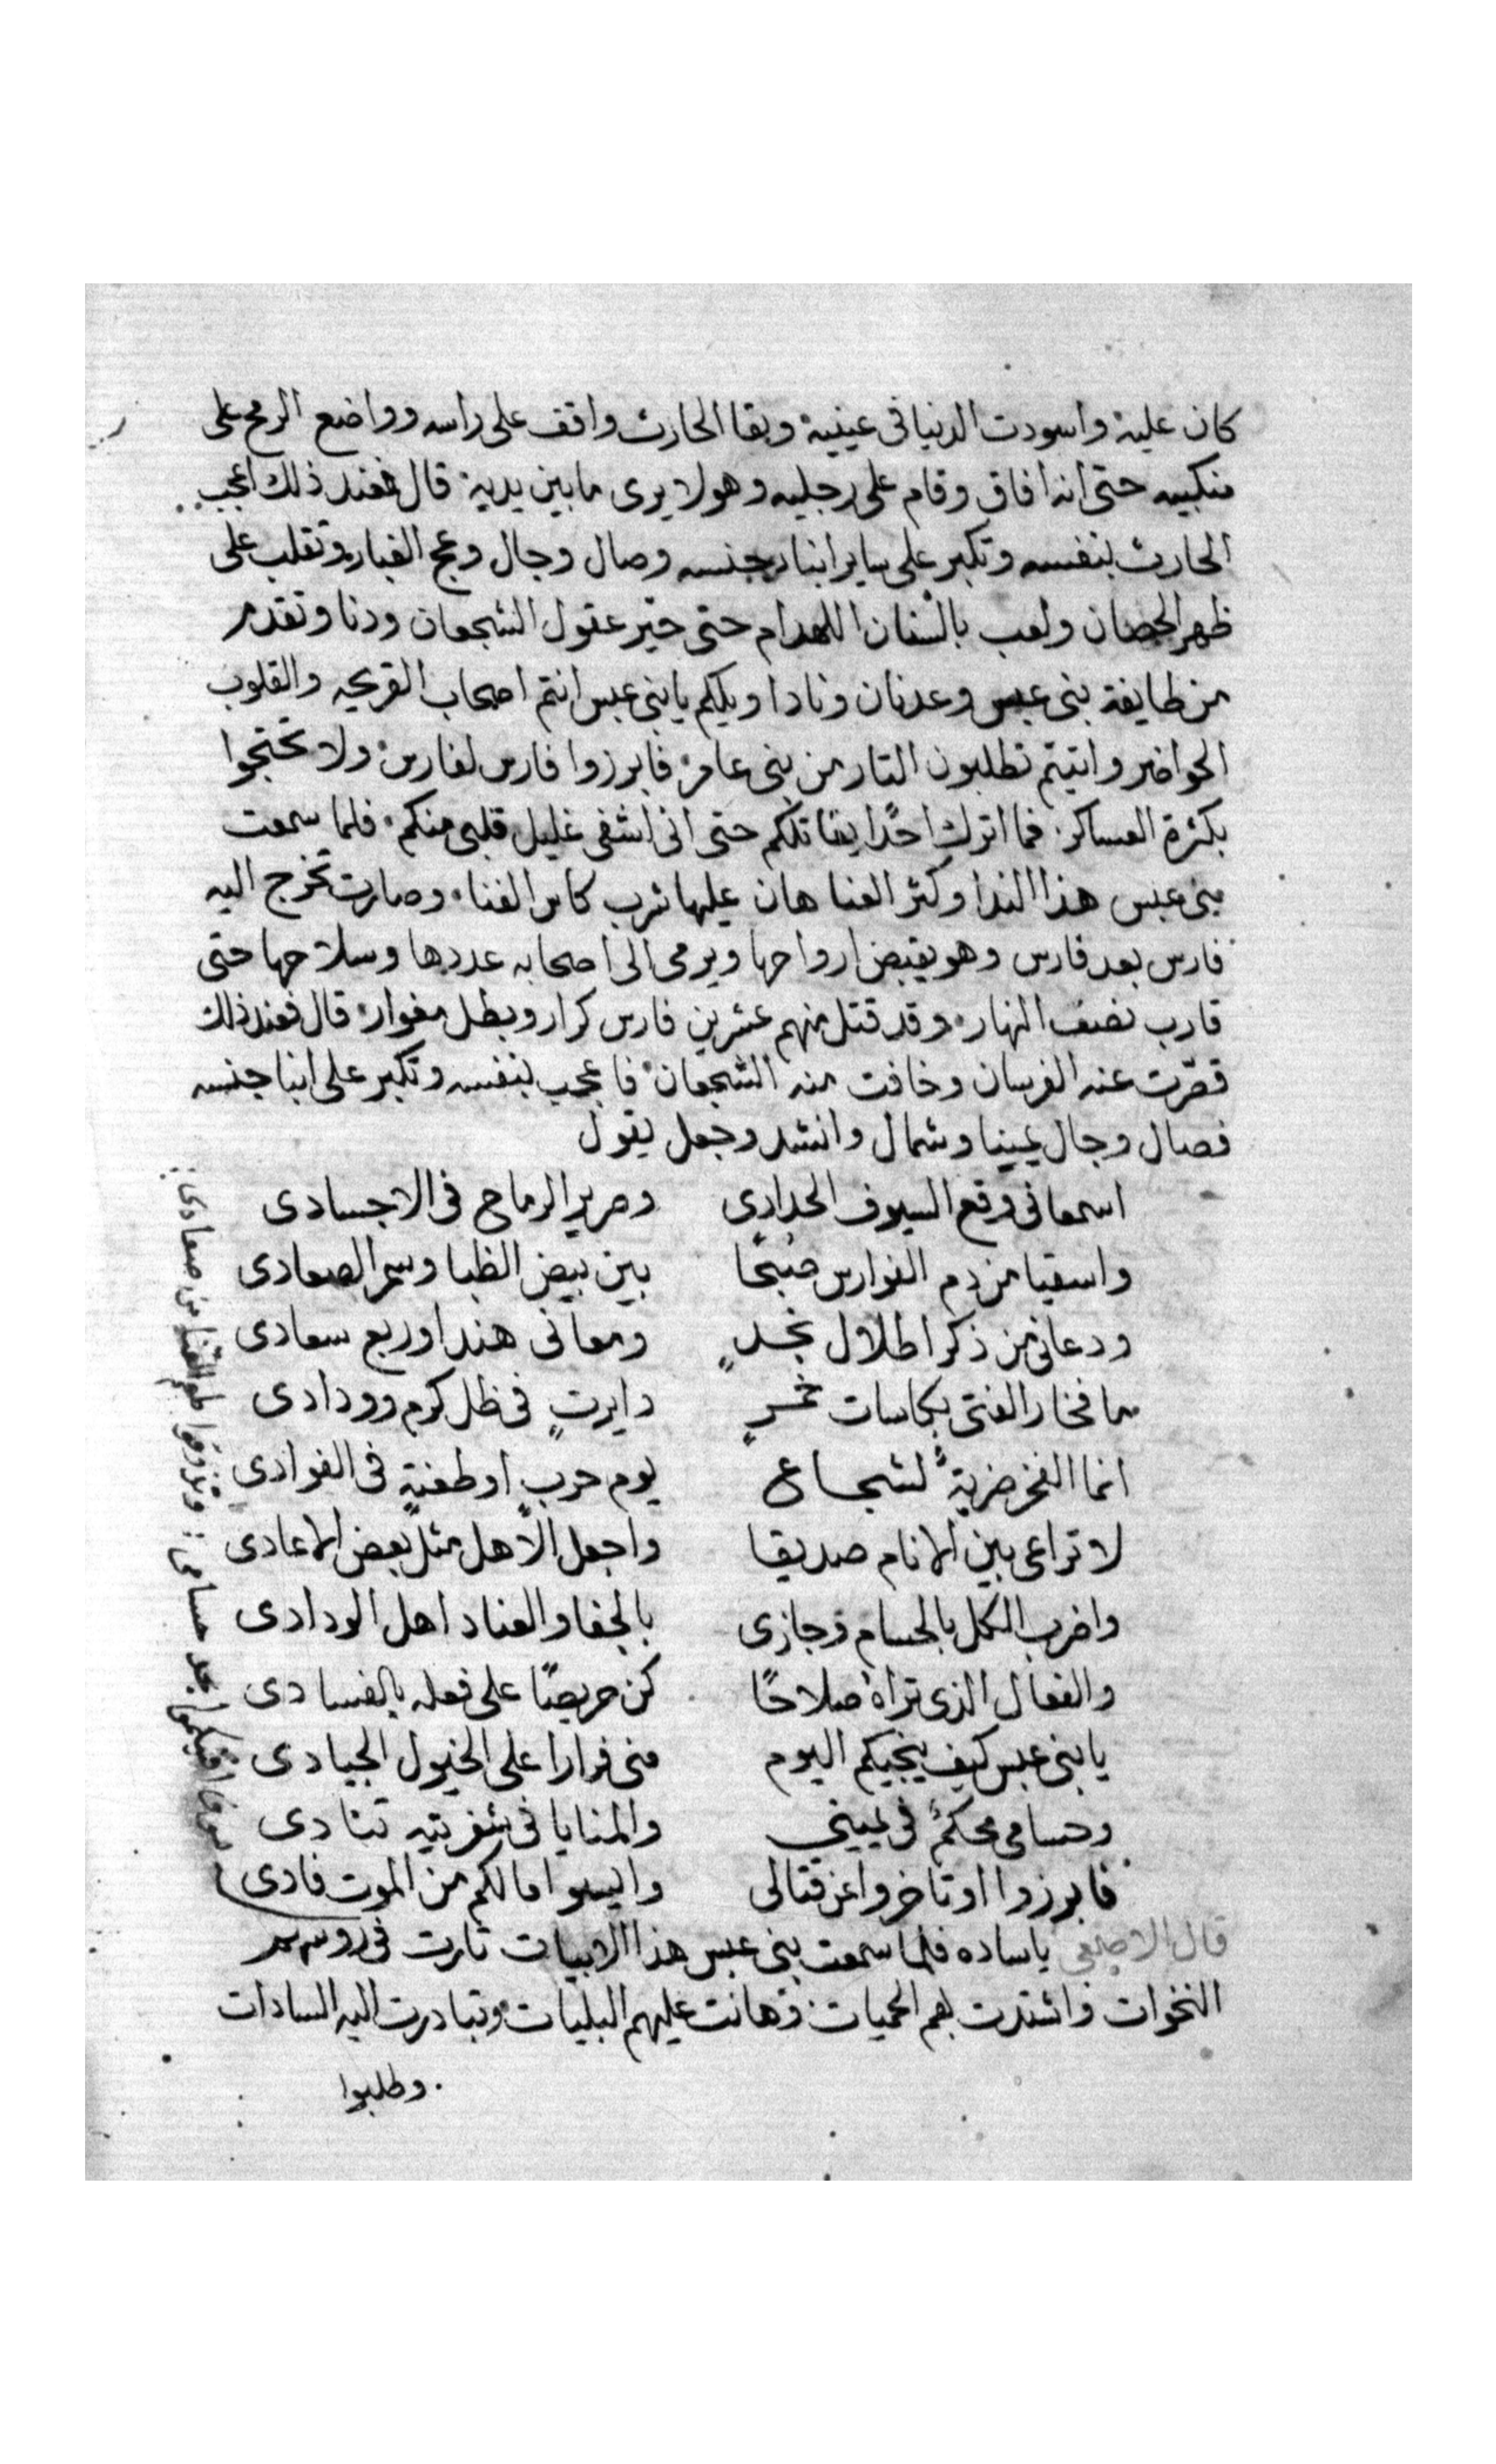 كان عليه واسودت الدنيا فى عينيه وبقا الحارث واقف على راسه وواضع الرمح على
منكبيه حتى انه افاق وقام على رجليه وهو لا يرى ما بين يديه قال فعند ذلك اعجب
الحارث بنفسه وتكبر على ساير ابنا جنسه وصال وجال وعج الغبار وتقلب على
ظهر الحصان ولعب بالسنان اللهدام حتى حير عقول الشجعان ودنا وتقدم
من طايفة بنى عبس وعدنان ونادا ويلكم يا بنى عبس انتم اصحاب القريحه والقلوب
الحواضر واتيتم تطلبون التار من بنى عامر فابرزوا فارس لفارس ولا تحتجوا
بكثرة العساكر فما اترك احدًا يقاتلكم حتى انى اشفى غليل قلبى منكم فلما سمعت
بنى عبس هذا الندا وكثر العنا هان عليها شرب كاس الفنا وصارت تخرج اليه
فارس بعد فارس وهو يقبض ارواحها ويرمى الى اصحابه عددها وسلاحها حتى
قارب نصف النهار وقد قتل منهم عشرين فارس كرار وبطل مغوار قال فعند ذلك
قصّرت عنه الفرسان وخافت منه الشجعان فاعجب بنفسه وتكبر على ابنا جنسه
فصال وجال يمينا وشمال وانشد وجعل يقول
اسمعانى وقع السيوف الحدادى وصرير الرماح فى الاجسادى
واسقيا من دم الفوارس صبحًا بين بيض الظبا وسمر الصعادى
ودعانى من ذكر اطلال نجدٍ ومعانى هند اوربع سعادى
ما فخار الفتى بكاسات خمرٍ دايرتٍ فى ظل كرم وودادى
انما الفخر ضربةً لشجاع يوم حربٍ او طعنةٍ فى الفوادى
لا تراعى بين الانام صديقا واجعل الاهل مثل بعض الاعادى
واضرب الكل بالحسام وجازى بالجفا والعناد اهل الودادى
والفعال الذى تراه صلاحًا كن حريصًا على فعله بالفسادى
يا بنى عبس كيف ينجيكم اليوم منى فرارا على الخيول الجيادى
وحسامى محكمٌ فى يمينى والمنايا فى شفرتيه تنادى
فابرزوا او تاخروا عن قتالى وايسوا ما لكم من الموت فادى
سوف افنيكموا بحد حسامى وتذوقوا طعم القنا من صعادى
قال الاصمعى ياساده فلما سمعت بنى عبس هذا الابيات ثارت فى روسهم
النخوات واشتدت بهم الحميات وهانت عليهم البليات وتبادرت اليه السادات
وطلبوا